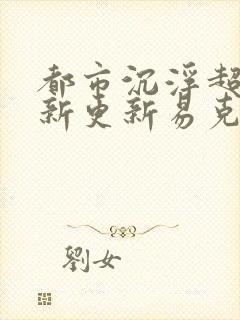 都市沉浮超
新更新易克
劉女